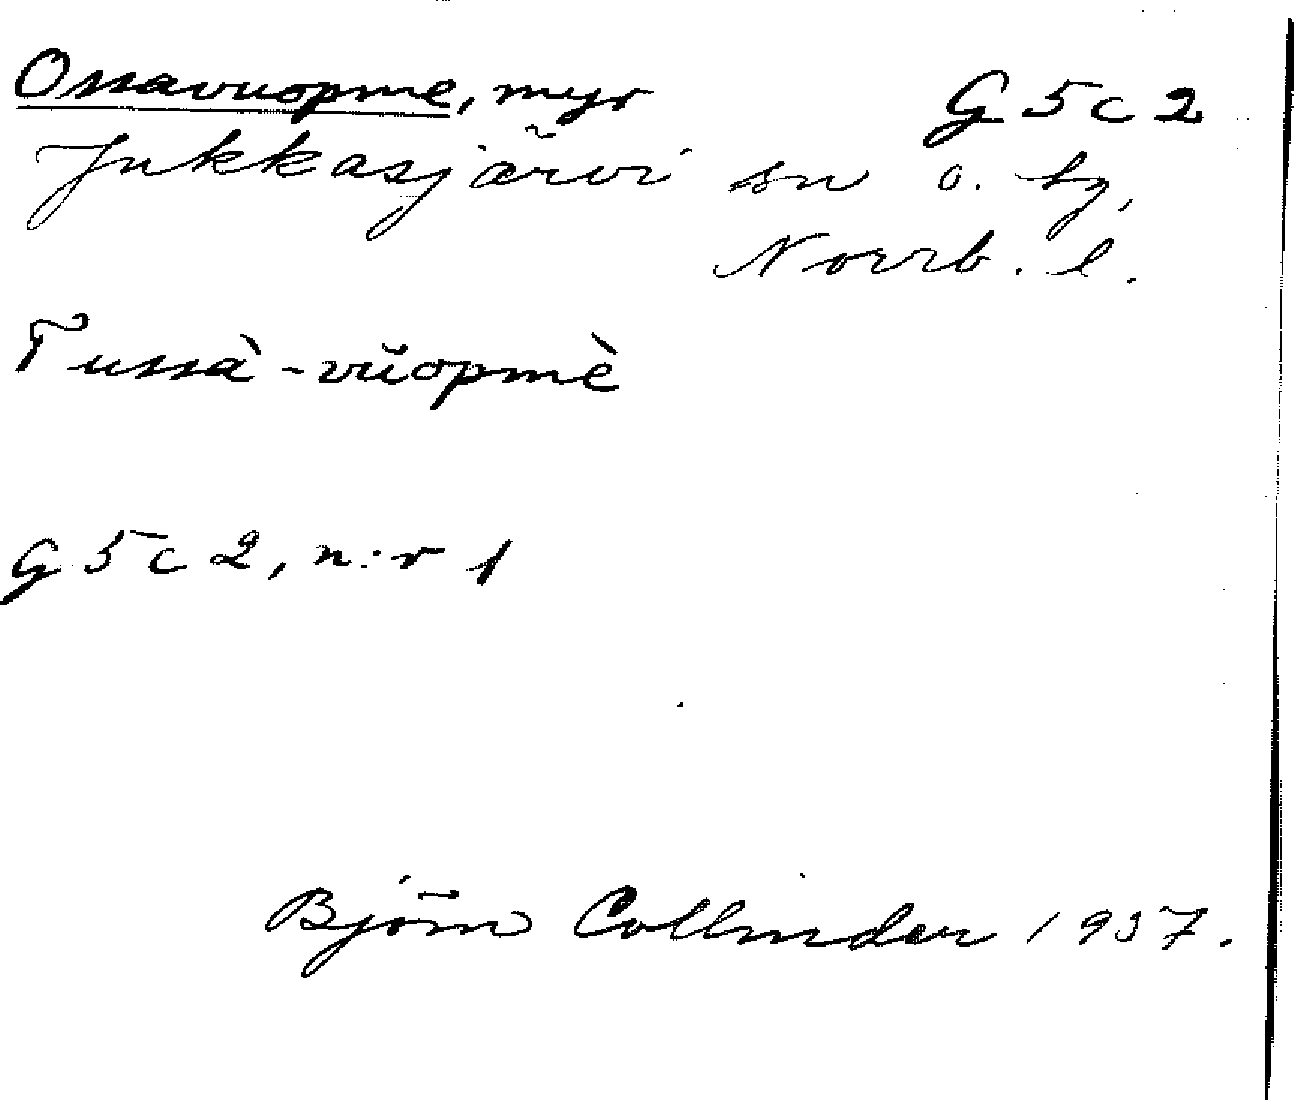 Ossavuopme, myr G 5 c 2
Jukkasjärvi sn o. tg,
Norrb. l.
Tussà-vŭopmè
G 5 c 2, n:r 1
Björn Collinder 1937.